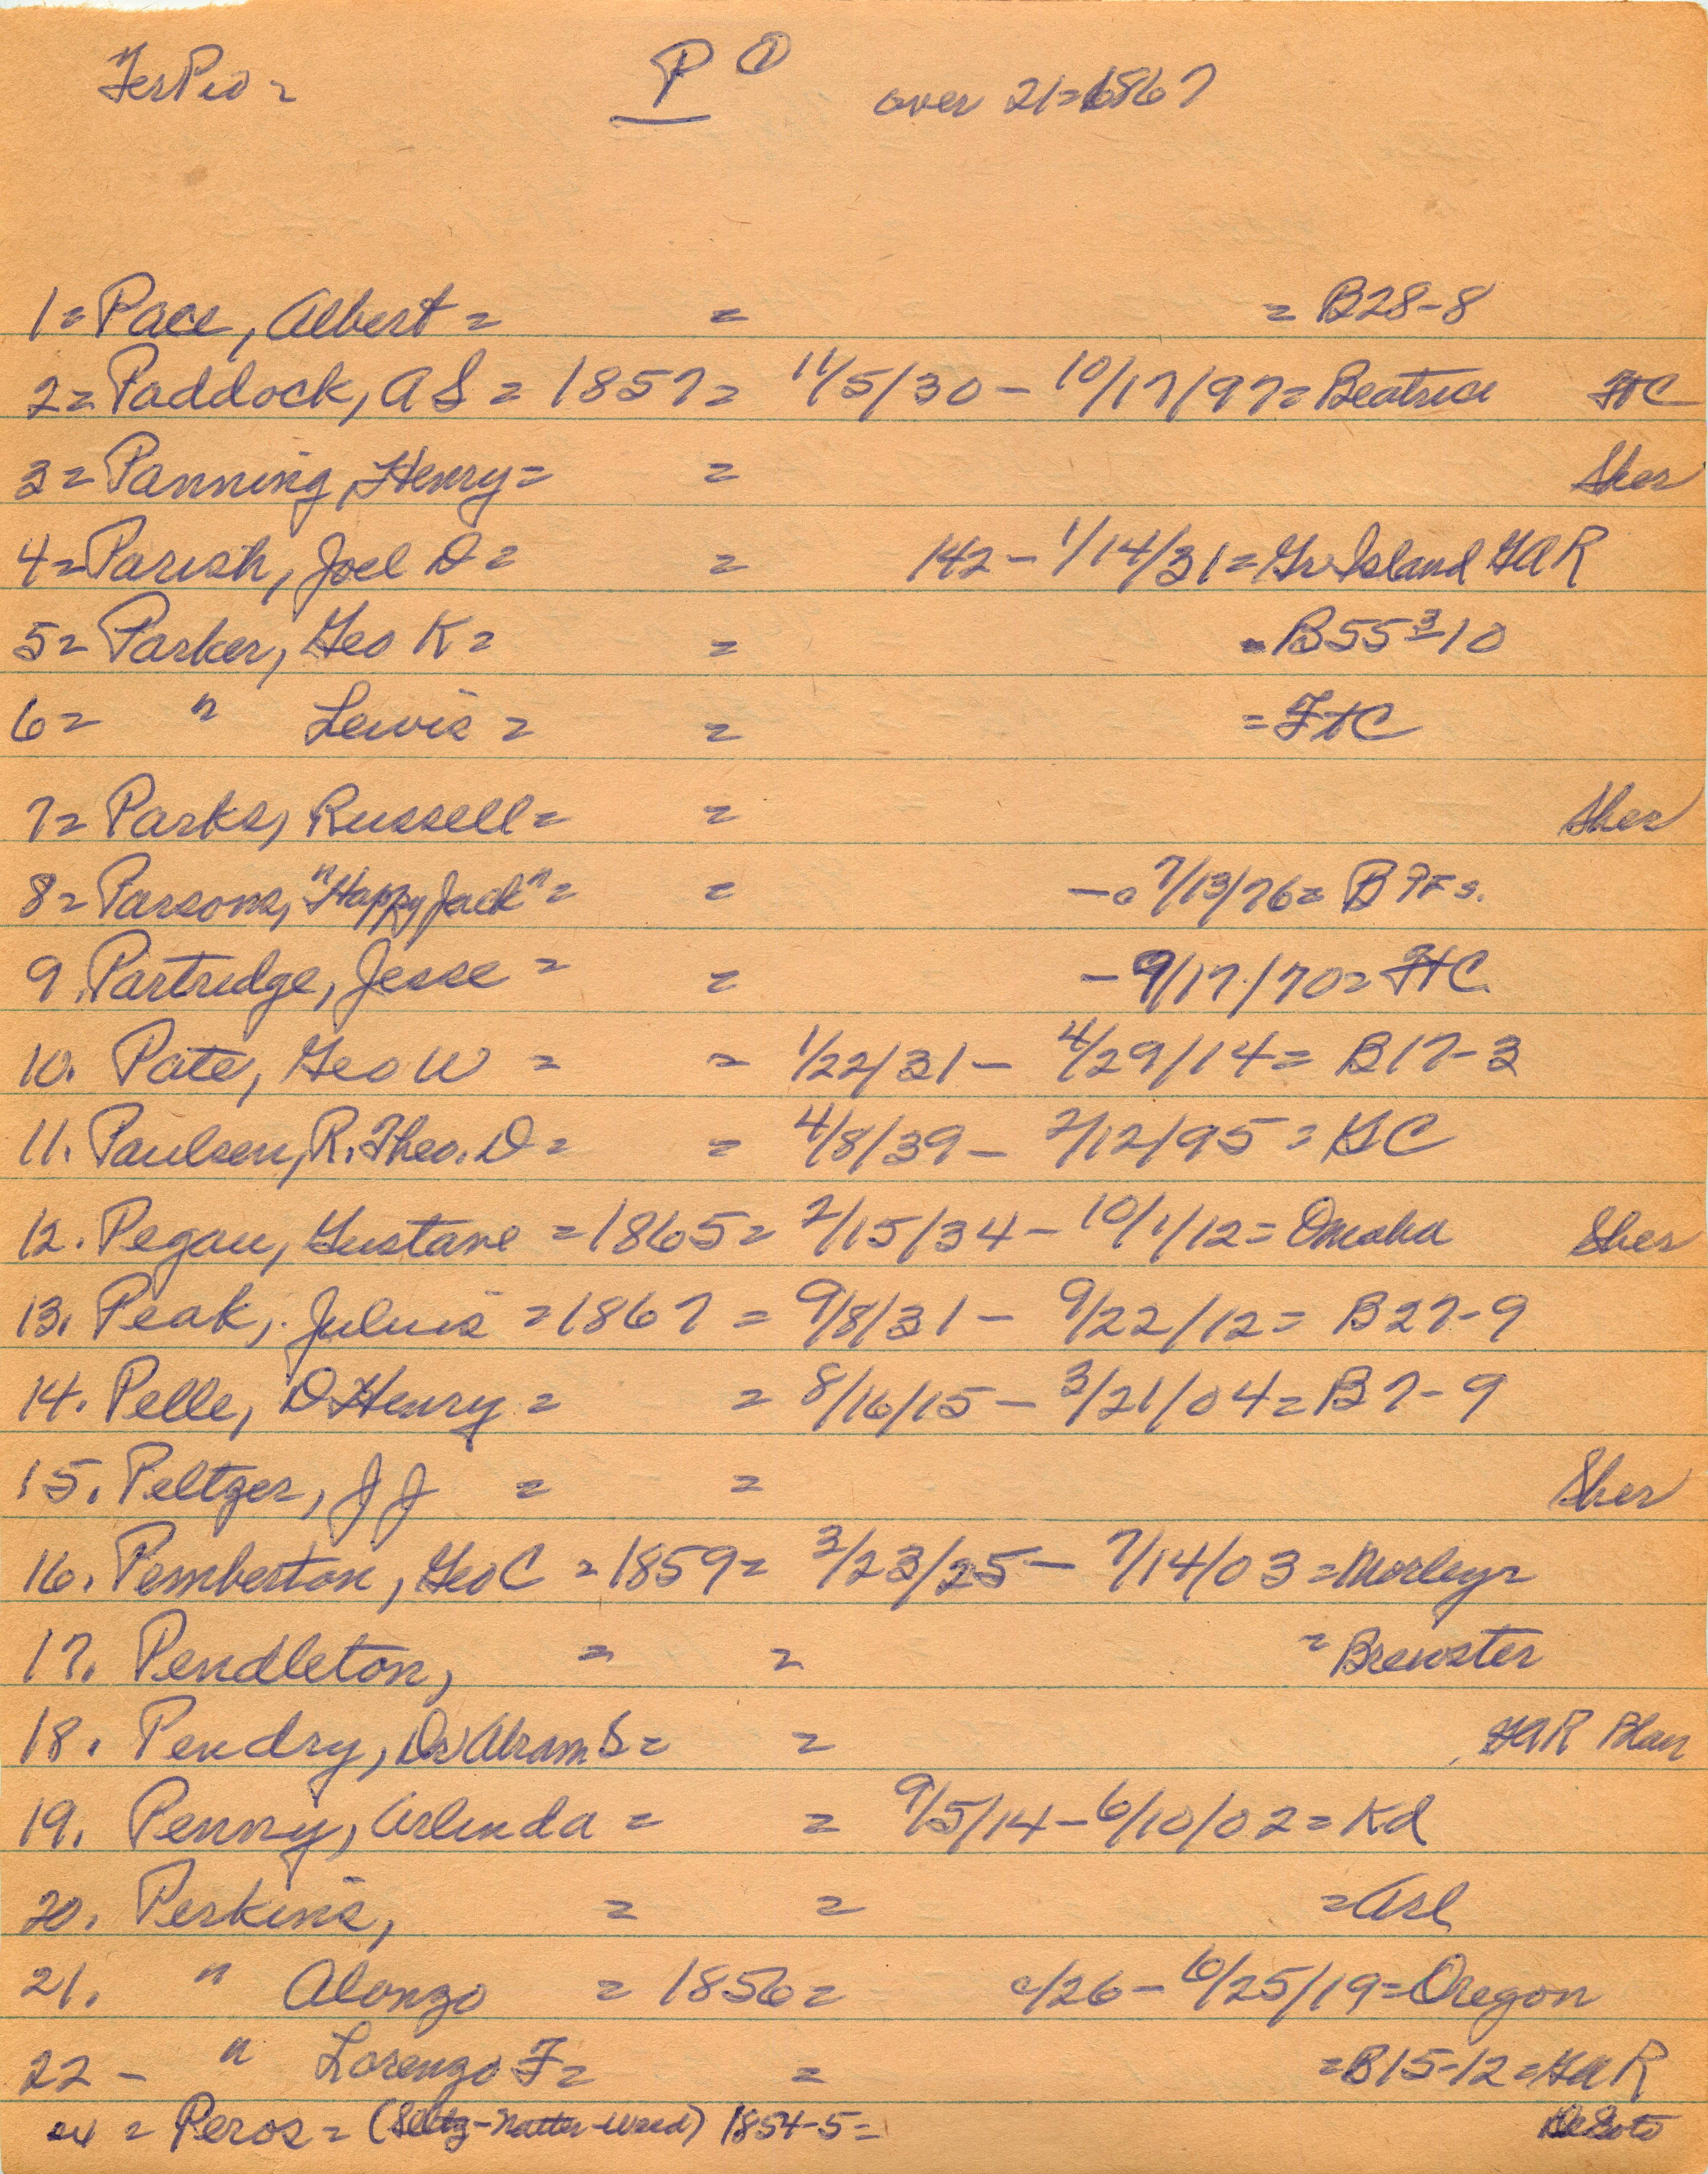 TerPio = P ① over 21=1867
1= Pace, Albert = = = B28-8
2= Paddock, A S = 1857= 11/5/30 - 10/17/97= Beatrice FtC
3= Panning, Henry= = Sher
4= Parish, Joel D= = 142 - 1/14/31= Gr Island GAR
5= Parker, Geo K= = = B55 3/10
6= " Lewis = = = FtC
7= Parks, Russell= = Sher
8= Parsons, "Happy Jack" = = - 7/13/76= B
9. Partridge, Jesse = = - 9/17/70= FtC
10. Pate, Geo W = = 1/22/31 - 4/29/14= B17-3
11. Paulsen, R. Theo. D= = 4/8/39 - 2/12/95 = GC
12. Pegau, Gustave = 1865= 2/15/34 - 10/1/12= Omaha Sher
13. Peak, Julius = 1867 = 9/8/31 - 9/22/12= B27-9
14. Pelle, D Henry = = 8/16/15 - 3/21/04= B7-9
15. Peltzer, J J = = Sher
16. Pemberton, Geo C = 1859= 3/23/25 - 7/14/03 = Morley=
17. Pendleton, = = = Brewster
18. Pendry, Dr Abram S= = GAR Blair
19. Penny, Arlinda = = 9/5/14 - 6/10/02= Kd
20. Perkins, = = = Arl
21. " Alonzo = 1856= c/26 - 6/25/19= Oregon
22 - " Lorenzo F= = = B15-12= GAR
= Peros = (Seltz-Natter-Weed) 1854-5= DeSoto